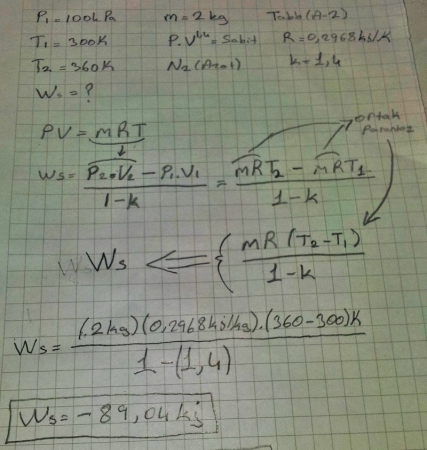 P₁ = 100kPa m = 2 kg Tablo (A-2)
T₁ = 300K P.V¹·⁴ = Sabit R = 0,2968 kJ/K
T₂ = 360K N₂ (Azot) k = 1,4
Ws = ?
PV = mRT ortak
parantez
Ws = P₂.V₂ - P₁.V₁ / 1-k = mRT₂ - mRT₁ / 1-k
Ws ⟸ { mR (T₂-T₁) / 1-k
Ws = (.2kg)(0,2968kj/kg).(360-300)K / 1-(1,4)
Ws = -89,04 kj